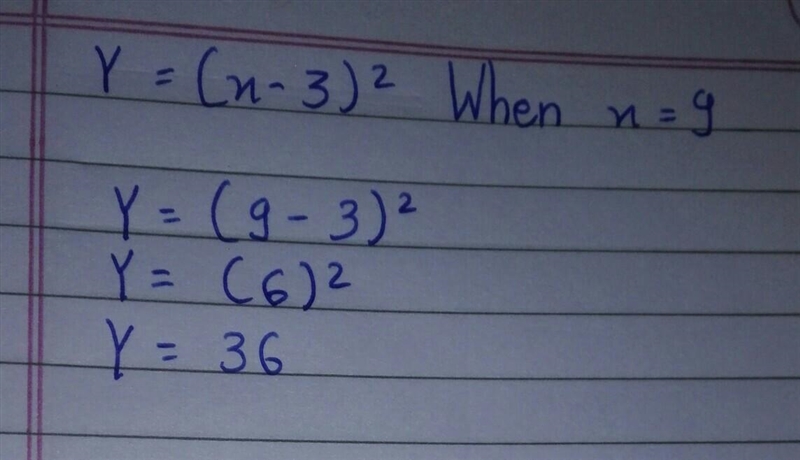 Y = (x - 3)² When x = 9
Y = (9 - 3)²
Y = (6)²
Y = 36